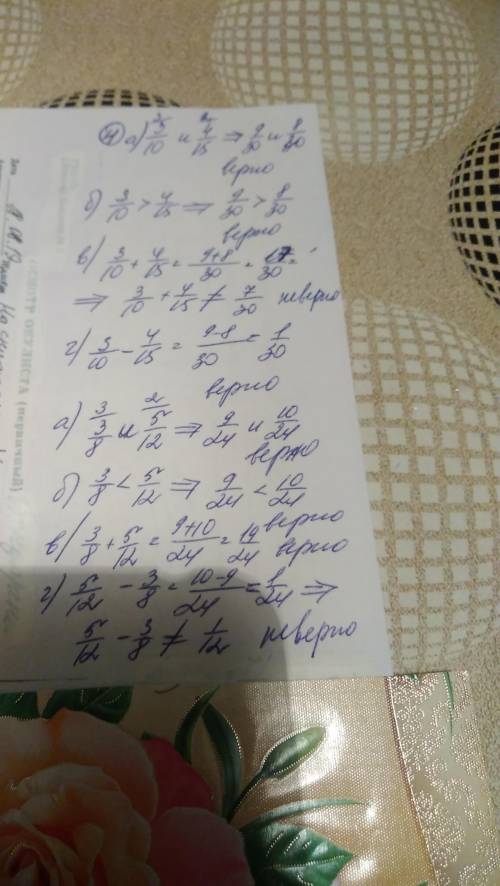 4) а) 3/10 и 4/15 ⇒ 9/30 и 8/30
верно
б) 3/10 > 4/15 ⇒ 9/30 > 8/30
верно
в) 3/10 + 4/15 = 9+8/30 = 17/30 =
⇒ 3/10 + 4/15 ≠ 7/30 неверно
г) 3/10 − 4/15 = 9-8/30 = 1/30
верно
а) 3/8 и 5/12 ⇒ 9/24 и 10/24
верно
б) 3/8 < 5/12 ⇒ 9/24 < 10/24
верно
в) 3/8 + 5/12 = 9+10/24 = 19/24 верно
г) 5/12 − 3/8 = 10-9/24 = 1/24 ⇒
5/12 − 3/8 ≠ 1/12 неверно
ОСМОТР ОКУЛИСТА (первичный)